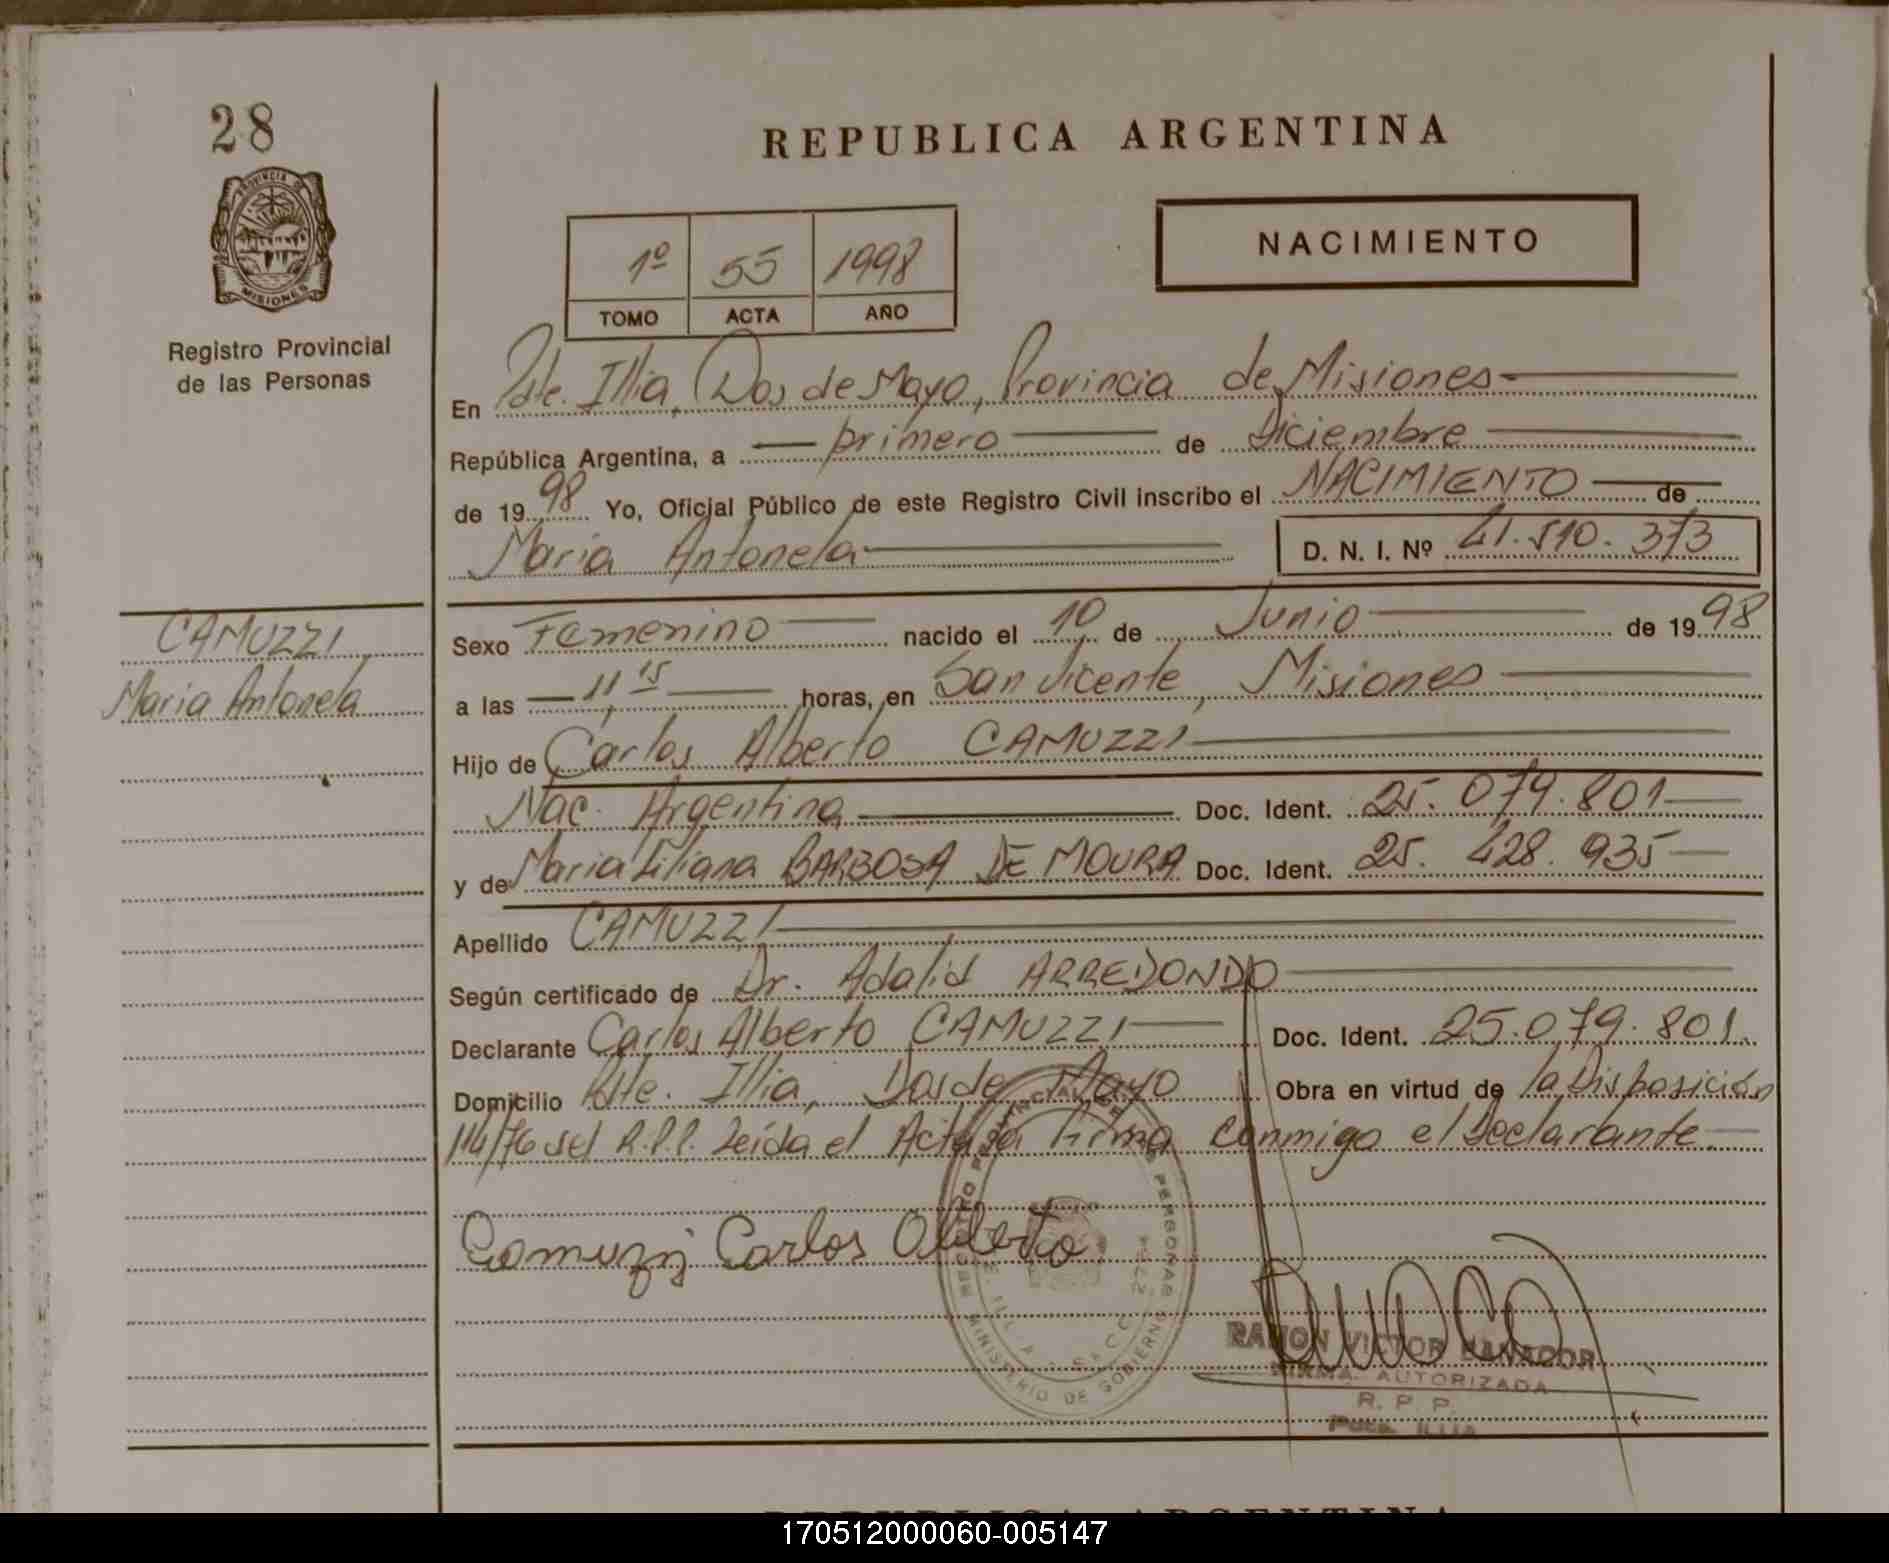 28
PROVINCIA DE
MISIONES
Registro Provincial
de las Personas
REPUBLICA ARGENTINA
1º 55 1998
TOMO ACTA AÑO
NACIMIENTO
En Pte. Illia, Dos de Mayo, Provincia de Misiones
República Argentina, a primero de Diciembre
de 1998 Yo, Oficial Público de este Registro Civil inscribo el NACIMIENTO de
Maria Antonela D. N. I. Nº 41.510.373
CAMUZZI
Maria Antonela
Sexo Femenino nacido el 10 de Junio de 1998
a las 11,15 horas, en San Vicente, Misiones
Hijo de Carlos Alberto CAMUZZI
Nac. Argentina Doc. Ident. 25.079.801
y de Maria Liliana BARBOSA DE MOURA Doc. Ident. 25.428.935
Apellido CAMUZZI
Según certificado de Dr. Adalid ARREDONDO
Declarante Carlos Alberto CAMUZZI Doc. Ident. 25.079.801.
Domicilio Pte. Illia, Dos de Mayo Obra en virtud de la Disposición
114/76 del R.P.P. Leída el Acta la firma conmigo el Declarante.
Camuzzi Carlos Alberto
REGISTRO PROVINCIAL DE LAS PERSONAS
MINISTERIO DE GOBIERNO
RAMON VICTOR
FIRMA AUTORIZADA
R. P. P.
Pcte. ILLIA
REPUBLICA ARGENTINA
170512000060-005147